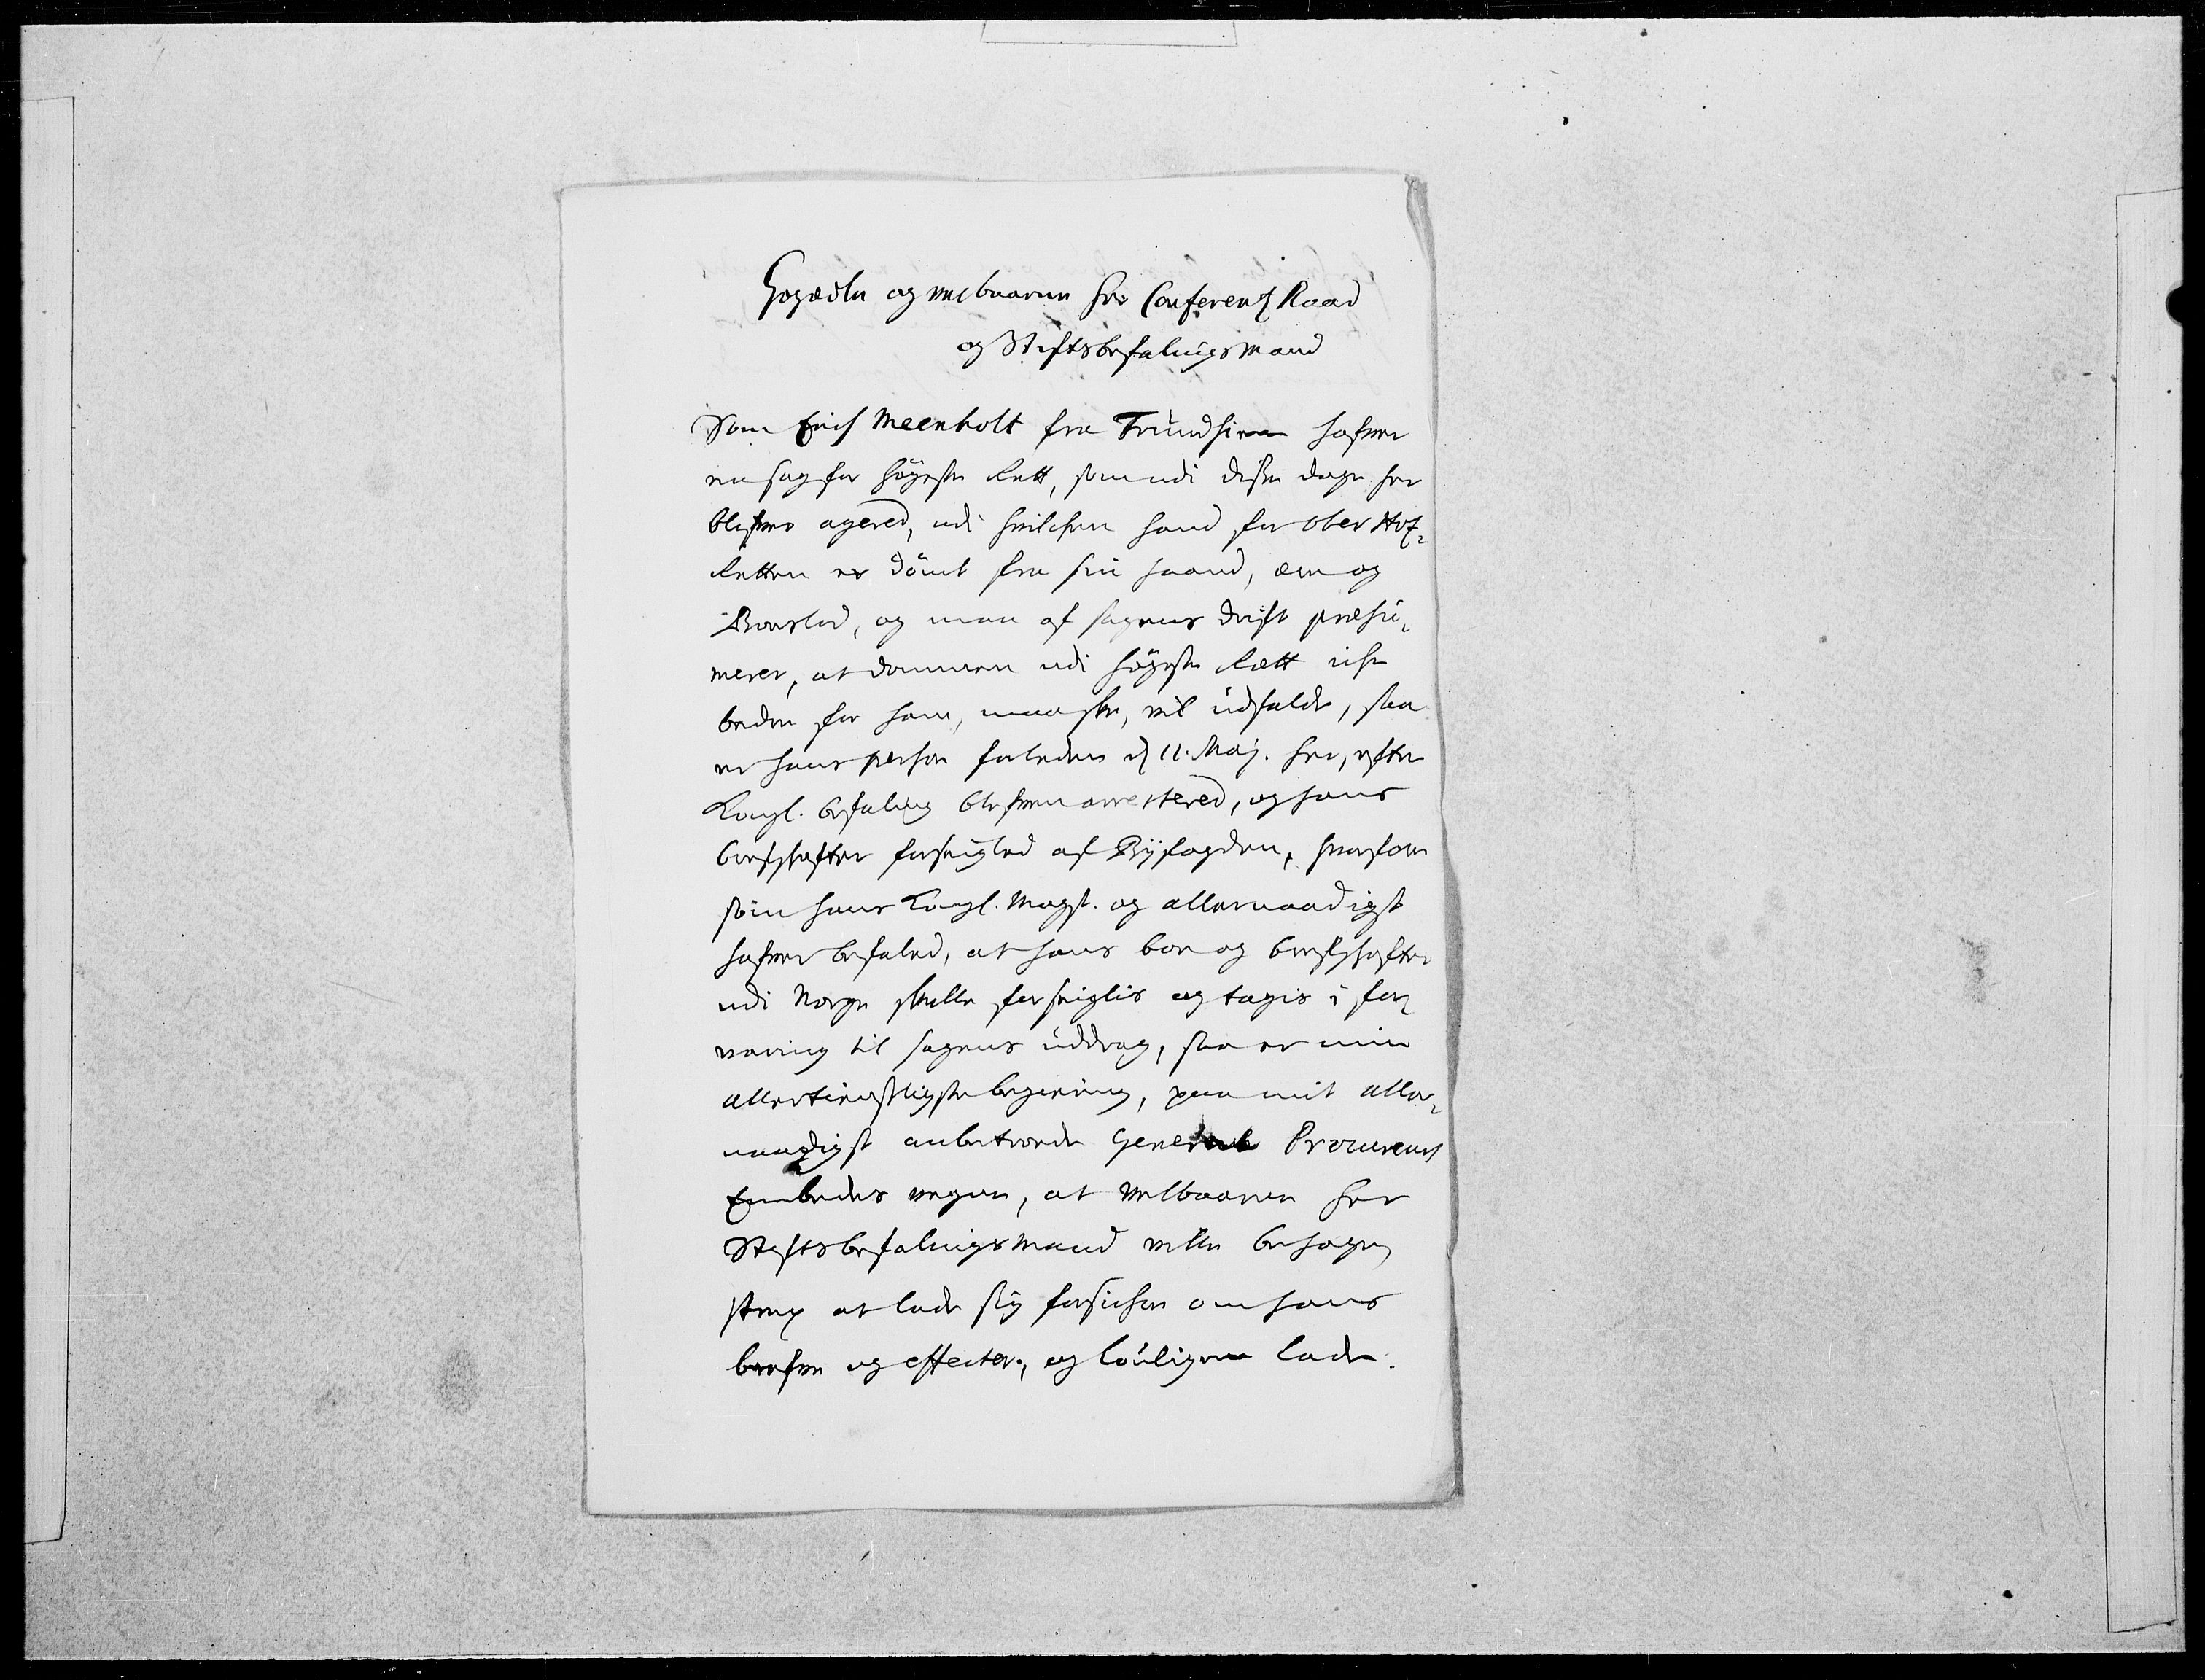 Høyædle og velbaarne hr. Conferentz Raad
og Stiftsbefalingsmand
Som Erich Meenholt fra Trundhiem hafver
en sag for høyeste Rett, som udi disse dage her
blifver agered, udi hvilchen hand for Ober Hof¬
Retten er dömt fra sin haand, ære og
Boeslod, og man af sagens drift præsu¬
merer, at dommen udi høyeste Rætt iche
bedre for ham, maaske, vil udfalde, saa
er hans person forleden d. 11. Maj. her, efter
Kongl. befaling blefven arrestered, og hans
brefskafter forseigled af Byefogden, hvorfore
som hans Kongl. Mayst. og allernaadigst
hafver befaled, at hans boe og brefskafter
udi Norge skulle forseiglis og tagis i for¬
varing til sagens uddrag, saa er min
allertienstligste begiering, paa mit aller¬
naadigst anbetroede General Procureurs
Embedes vegne, at velbaarne her
Stiftsbefalingsmand ville behage,
strax at lade sig forsichre om hans
brefve og effecter, og lovligen lade